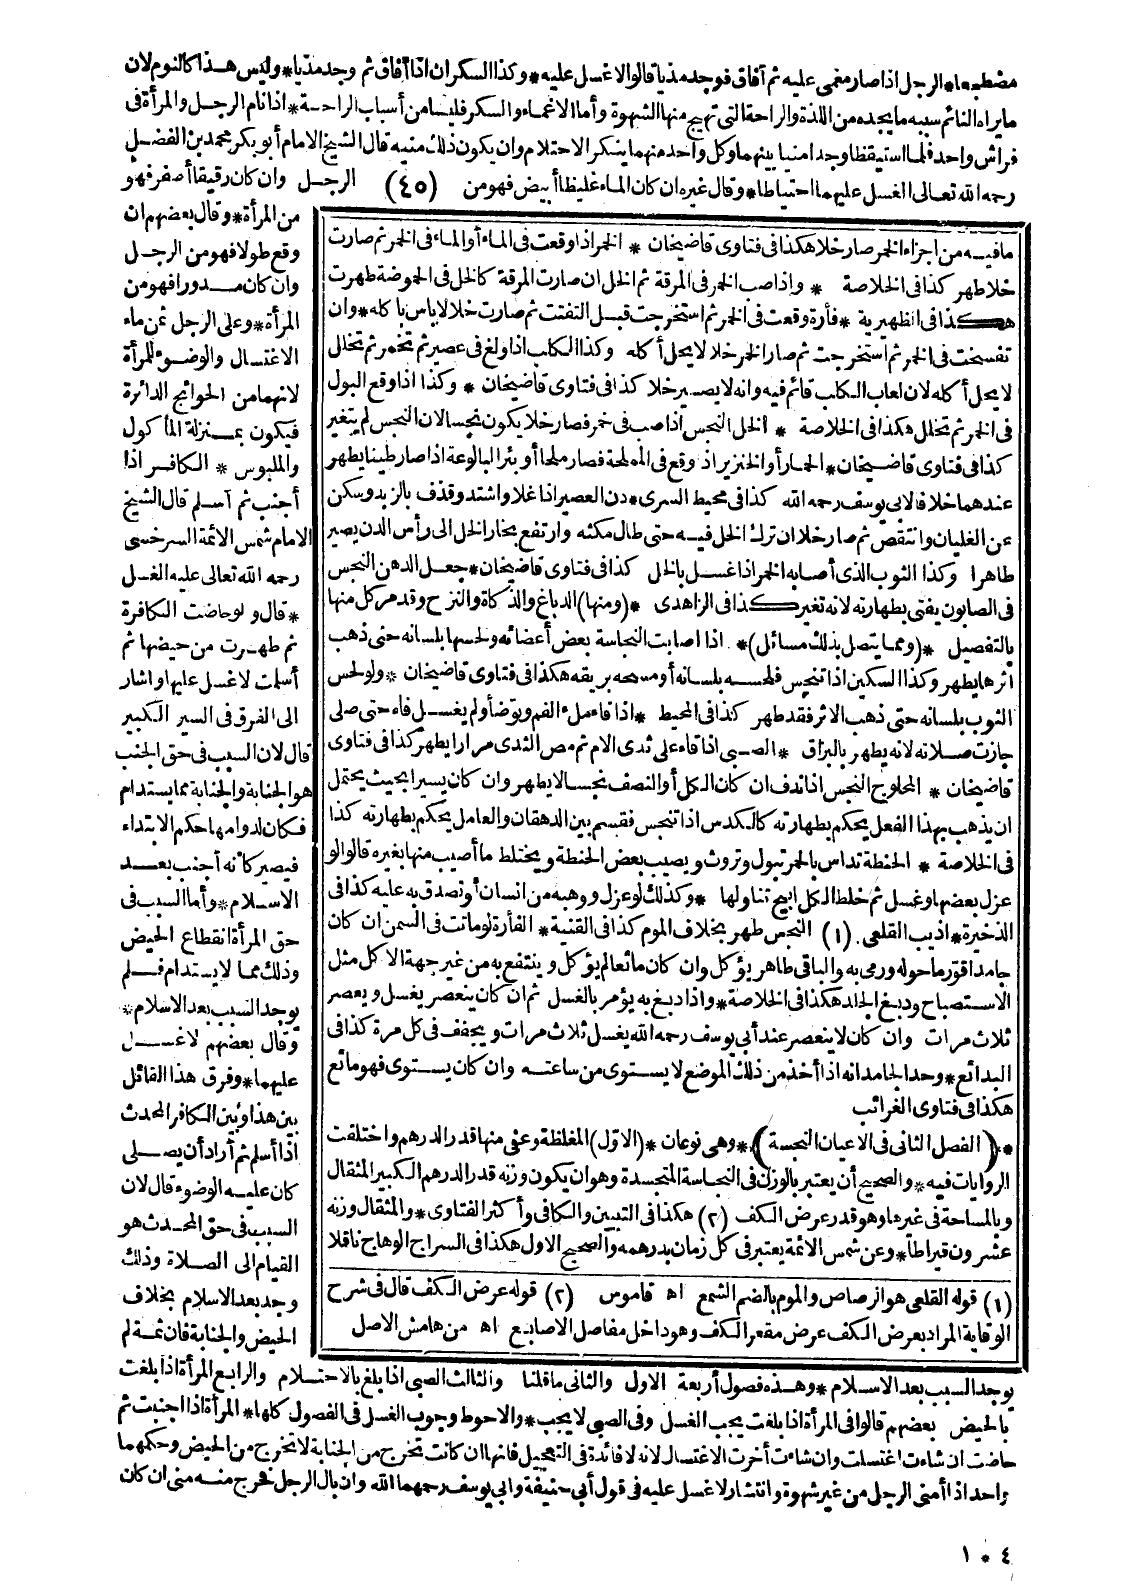 مضطجعا * الرجل اذا صار مغمى عليه ثم أفاق فوجد مذيا قالوا لا غسل عليه * وكذا السكران اذا أفاق ثم وجد مذيا * وليس هذا كالنوم لان
ما يراه النائم سببه ما يجده من اللذة والراحة التى تهيج منها الشهوة وأما الاغماء والسكر فليسا من أسباب الراحة * اذا نام الرجل والمرأة فى
فراش واحد فلما استيقظا وجدا منيا بينهما وكل واحد منهما ينكر الاحتلام وان يكون ذلك منيه قال الشيخ الامام أبو بكر محمد بن الفضل
رحمه الله تعالى الغسل عليهما احتياطا * وقال غيره ان كان الماء غليظا أبيض فهو من (٤٥) الرجل وان كان رقيقا أصفر فهو
من المرأة * وقال بعضهم ان
وقع طولا فهو من الرجل
وان كان مدورا فهو من
المرأة * وعلى الرجل ثمن ماء
الاغتسال والوضوء للمرأة
لانهما من الحوائج الدائرة
فيكون بمنزلة المأكول
والملبوس * الكافر اذا
أجنب ثم أسلم قال الشيخ
الامام شمس الائمة السرخسى
رحمه الله تعالى عليه الغسل
* قال ولو حاضت الكافرة
ثم طهرت من حيضها ثم
أسلمت لا غسل عليها وأشار
الى الفرق فى السير الكبير
قال لان السبب فى حق الجنب
هو الجنابة والجنابة مما يستدام
فكان لدوامها حكم الابتداء
فيصير كأنه أجنب بعد
الاسلام * وأما السبب فى
حق المرأة انقطاع الحيض
وذلك مما لا يستدام فلم
يوجد السبب بعد الاسلام *
وقال بعضهم لا غسل
عليهما * وفرق هذا القائل
بين هذا وبين الكافر المحدث
اذا أسلم ثم أراد أن يصلى
كان عليه الوضوء قال لان
السبب فى حق المحدث هو
القيام الى الصلاة وذلك
وجد بعد الاسلام بخلاف
الحيض والجنابة فان ثمة لم
ما فيه من اجزاء الخمر صار خلا هكذا فى فتاوى قاضيخان * الخمر اذا وقعت فى الماء أو الماء فى الخمر ثم صارت
خلا طهر كذا فى الخلاصة * واذا صب الخمر فى المرقة ثم الخل ان صارت المرقة كالخل فى الحموضة طهرت
هكذا فى الظهيرية * فأرة وقعت فى الخمر ثم استخرجت قبل التفتت ثم صارت خلا لا بأس بأكله * وان
تفسخت فى الخمر ثم استخرجت ثم صار الخمر خلا لا يحل أكله وكذا الكلب اذا ولغ فى عصير ثم تخمر ثم تخلل
لا يحل أكله لان لعاب الكلب قائم فيه وانه لا يصير خلا كذا فى فتاوى قاضيخان * وكذا اذا وقع البول
فى الخمر ثم تخلل هكذا فى الخلاصة * الخل النجس اذا صب فى خمر فصار خلا يكون نجسا لان النجس لم يتغير
كذا فى فتاوى قاضيخان * الحمار أو الخنزير اذ وقع فى المملحة فصار ملحا أو بئر البالوعة اذا صار طينا يطهر
عندهما خلافا لابى يوسف رحمه الله كذا فى محيط السرى * دن العصير اذا غلا واشتد وقذف بالزبد وسكن
عن الغليان وانتقص ثم صار خلا ان ترك الخل فيه حتى طال مكثه وارتفع بخار الخل الى رأس الدن يصير
طاهرا وكذا الثوب الذى أصابه الخمر اذا غسل بالخل كذا فى فتاوى قاضيخان * جعل الدهن النجس
فى الصابون يفتى بطهارته لانه تغير كذا فى الزاهدى * (ومنها) الدباغ والذكاة والنزح وقد مر كل منها
بالتفصيل * (ومما يتصل بذلك مسائل) * اذا اصابت النجاسة بعض أعضائه ولحسها بلسانه حتى ذهب
اثرها يطهر وكذا السكين اذا تنجس فلحسه بلسانه أو مسحه بريقه هكذا فى فتاوى قاضيخان * ولو لحس
الثوب بلسانه حتى ذهب الاثر فقد طهر كذا فى المحيط * اذا قاء ملء الفم وتوضأ ولم يغسل فاه حتى صلى
جازت صلاته لانه يطهر بالبزاق * الصبى اذا قاء على ثدى الام ثم مص الثدى مرارا يطهر كذا فى فتاوى
قاضيخان * المحلوج النجس اذا ندف ان كان الكل أو النصف نجسا لا يطهر وان كان يسيرا بحيث يحتمل
ان يذهب بهذا الفعل يحكم بطهارته كالكدس اذا تنجس فقسم بين الدهقان والعامل يحكم بطهارته كذا
فى الخلاصة * الحنطة تداس بالحمر تبول وتروث ويصيب بعض الحنطة ويختلط ما أصيب منها بغيره قالوا لو
عزل بعضها وغسل ثم خلط الكل ابيح تناولها * وكذلك لو عزل ووهبه من انسان أو تصدق به عليه كذا فى
الذخيرة * اذيب القلعى (١) النجس طهر بخلاف الموم كذا فى القنية * الفأرة لو ماتت فى السمن ان كان
جامدا قور ما حوله ورمى به والباقى طاهر يؤكل وان كان مائعا لم يؤكل وينتفع به من غير جهة الاكل مثل
الاستصباح ودبغ الجلد هكذا فى الخلاصة * واذا دبغ به يؤمر بالغسل ثم ان كان ينعصر يغسل ويعصر
ثلاث مرات وان كان لا ينعصر عند أبى يوسف رحمه الله يغسل ثلاث مرات ويجفف فى كل مرة كذا فى
البدائع * وحد الجامد انه اذا أخذ من ذلك الموضع لا يستوى من ساعته وان كان يستوى فهو مائع
هكذا فى فتاوى الغرائب
* (الفصل الثانى فى الاعيان النجسة) * وهى نوعان * (الاوّل) المغلظة وعفى منها قدر الدرهم واختلفت
الروايات فيه * والصحيح أن يعتبر بالوزن فى النجاسة المتجسدة وهو ان يكون وزنه قدر الدرهم الكبير المثقال
وبالمساحة فى غيرها وهو قدر عرض الكف (٢) هكذا فى التبيين والكافى وأكثر الفتاوى * والمثقال وزنه
عشرون قيراطا * وعن شمس الائمة يعتبر فى كل زمان بدرهمه والصحيح الاول هكذا فى السراج الوهاج ناقلا
(١) قوله القلعى هو الرصاص والموم بالضم الشمع اه قاموس (٢) قوله عرض الكف قال فى شرح
الوقاية المراد بعرض الكف عرض مقعر الكف وهو داخل مفاصل الاصابع اه من هامش الاصل
يوجد السبب بعد الاسلام * وهذه فصول أربعة الاول والثانى ما قلنا والثالث الصبى اذا بلغ بالاحتلام والرابع المرأة اذا بلغت
بالحيض بعضهم قالوا فى المرأة اذا بلغت يجب الغسل وفى الصبى لا يجب * والاحوط وجوب الغسل فى الفصول كلها * المرأة اذا اجنبت ثم
حاضت ان شاءت اغتسلت وان شاءت أخرت الاغتسال لانه لا فائدة فى التعجيل فانها ان كانت تخرج من الجنابة لا تخرج من الحيض وحكمهما
واحد اذا أمنى الرجل من غير شهوة وانتشار لا غسل عليه فى قول أبى حنيفة وابى يوسف رحمهما الله وان بال الرجل فخرج منه منى ان كان
١٠٤